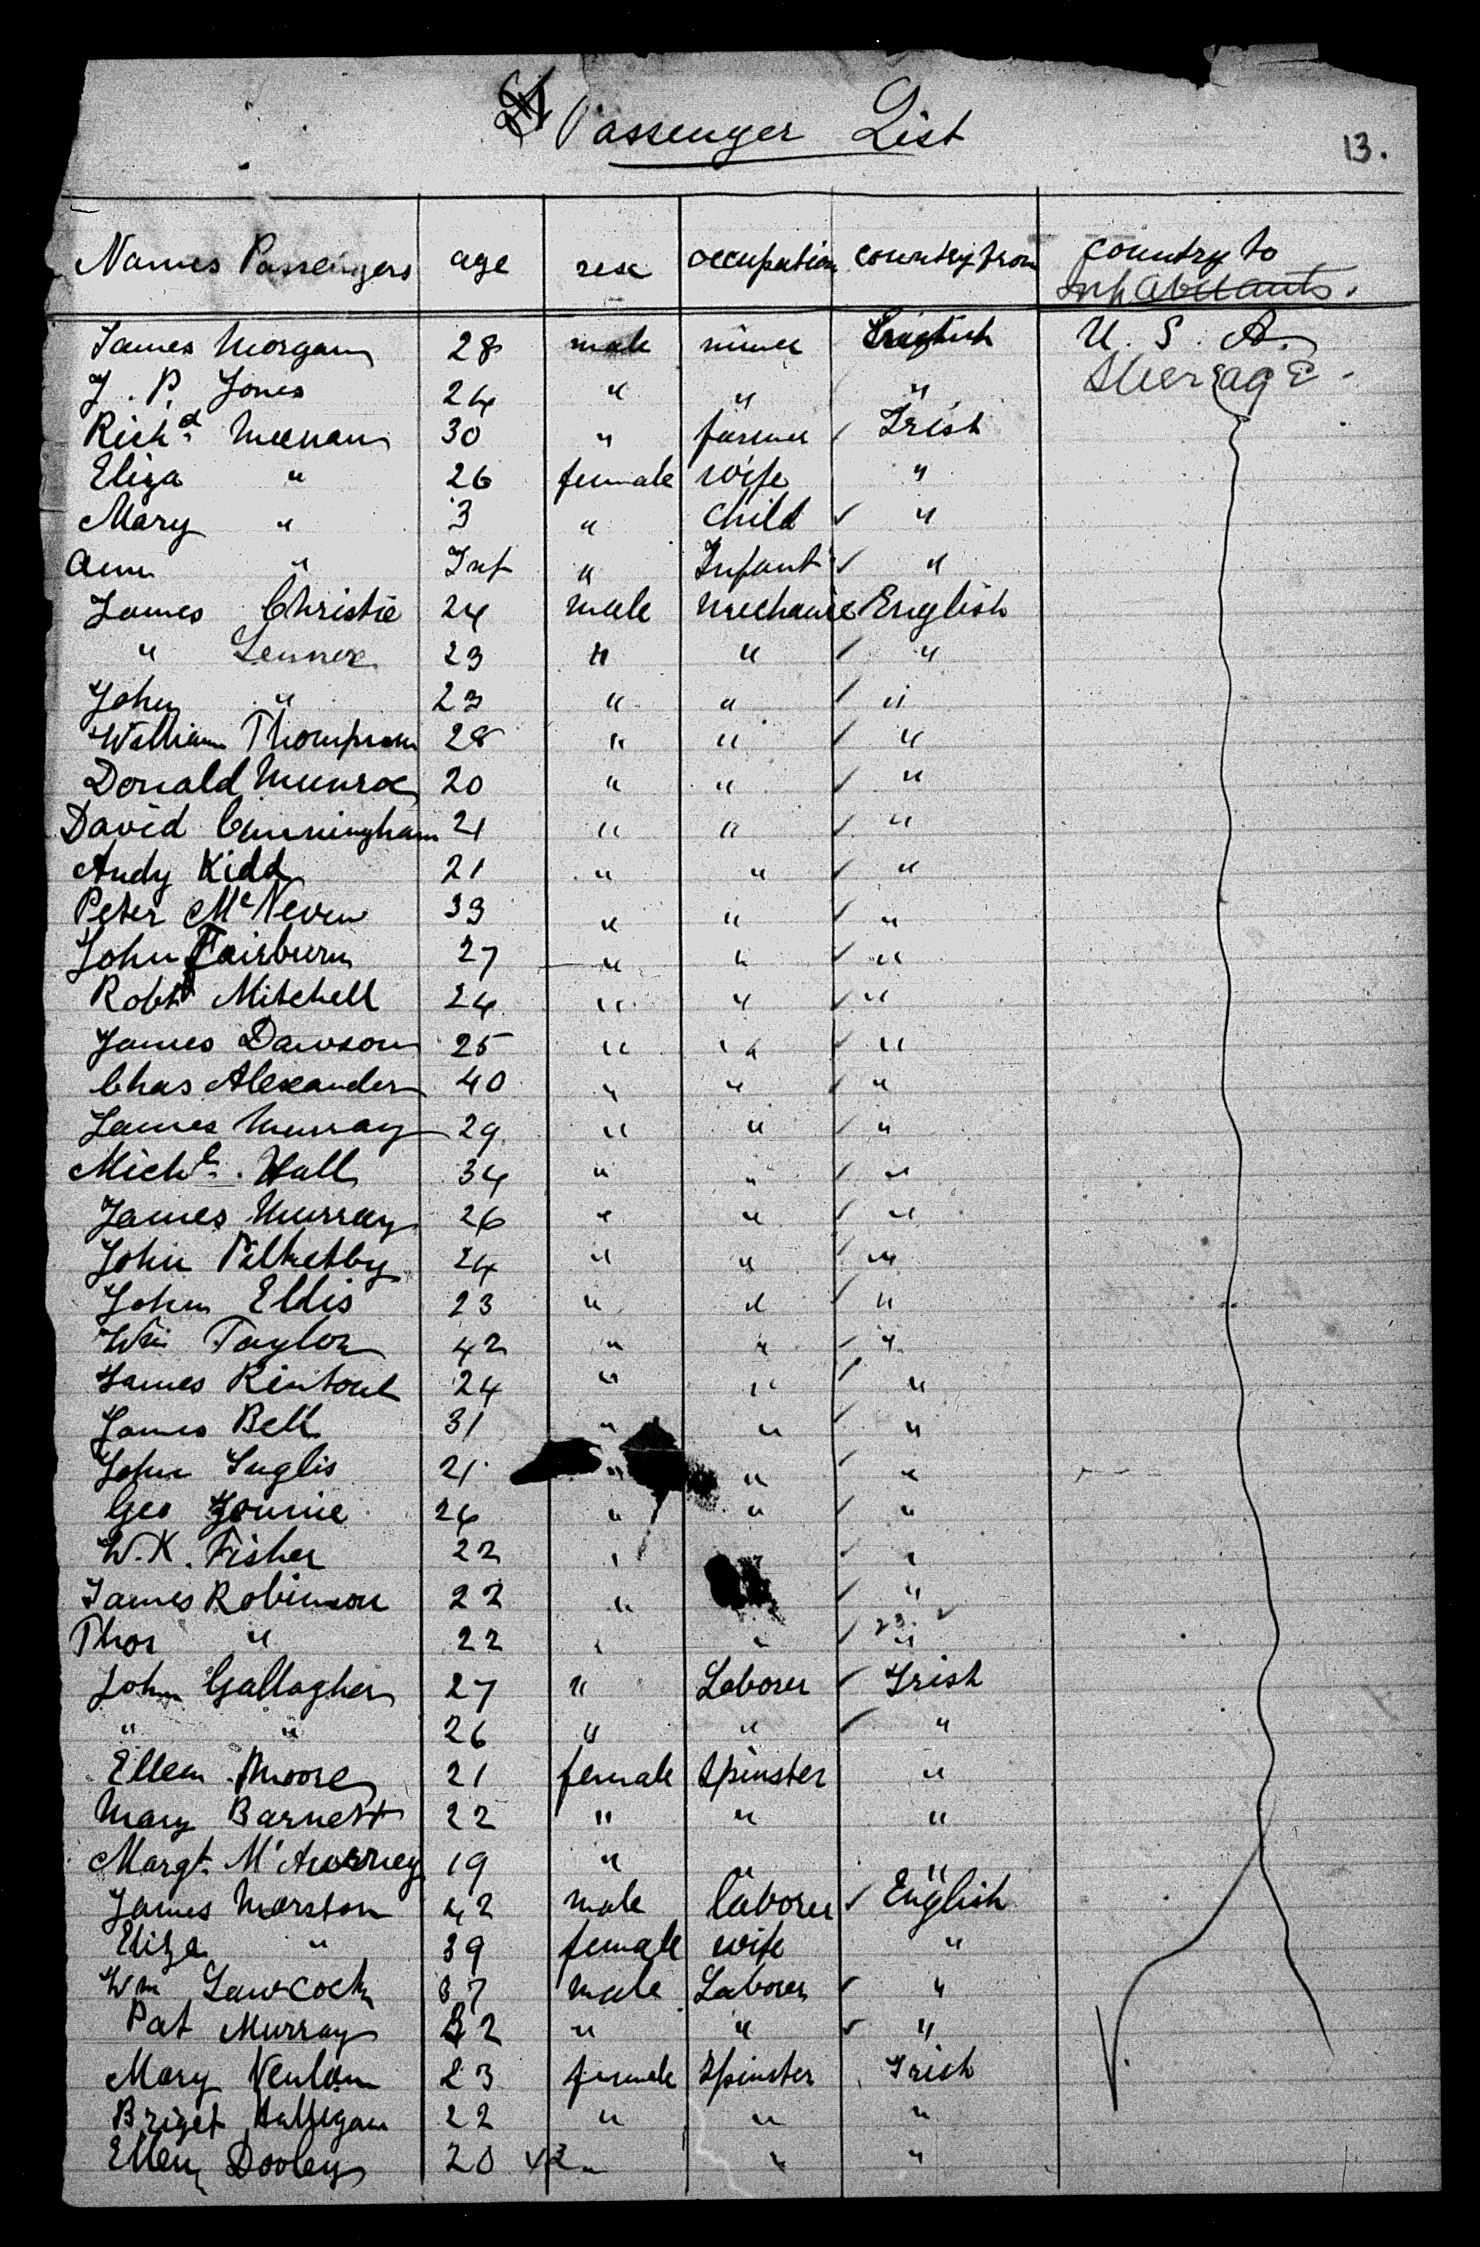 Passenger List
13.
Names Passengers age sex occupation country from country to
Inhabitants.
James Morgan 28 male miner English U. S. A.
J. P. Jones 24 " " " Steerage
Richd Meenan 30 " farmer Irish
Eliza " 26 female wife "
Mary " 3 " child ✓ "
Ann " Inf " Infant ✓ "
James Christie 24 male mechanic English
" Lennox 23 " " ✓ "
John " 23 " " ✓ "
William Thompson 28 " " ✓ "
Donald Munroe 20 " " ✓ "
David Cunningham 21 " " ✓ "
Andy Kidd 21 " " ✓ "
Peter McNeven 33 " " ✓ "
John Fairburn 27 " " ✓ "
Robt Mitchell 24 " " ✓ "
James Dawson 25 " " ✓ "
Chas Alexander 40 " " ✓ "
James Murray 29 " " ✓ "
Michl. Hall 34 " " ✓ "
James Murray 26 " " ✓ "
John 24 " " ✓ "
John Ellis 23 " " ✓ "
Wm Taylor 42 " " ✓ "
James Rintoul 24 " " ✓ "
James Bell 31 " " ✓ "
John Inglis 21 " " ✓ "
Geo 26 " " ✓ "
W. K. Fisher 22 " ✓ "
James Robinson 22 " ✓ "
Thos " 22 " " ✓ 23 "
John Gallagher 27 " Laborer ✓ Irish
" " 26 " " ✓ "
Ellen Moore 21 female Spinster "
Mary Barnett 22 " " "
Margt. 19 " " "
James Marston 42 male laborer ✓ English
Eliza " 39 female wife "
Wm Lawcock 37 male Laborer ✓ "
Pat Murray 32 " " ✓ "
Mary 23 female Spinster Irish
Briget Halligan 22 " " "
Ellen Dooley 20 " " "